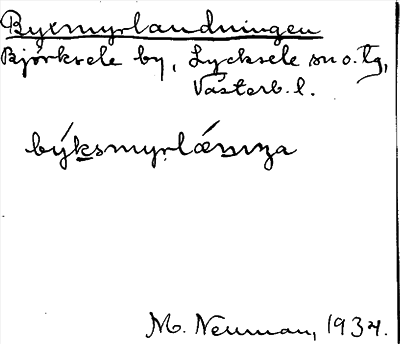 Byxmyrlandningen
Björksele by, Lycksele sn o. tg,
Västerb. l.
býksmyrlǽnnıza
M. Neuman, 1934.